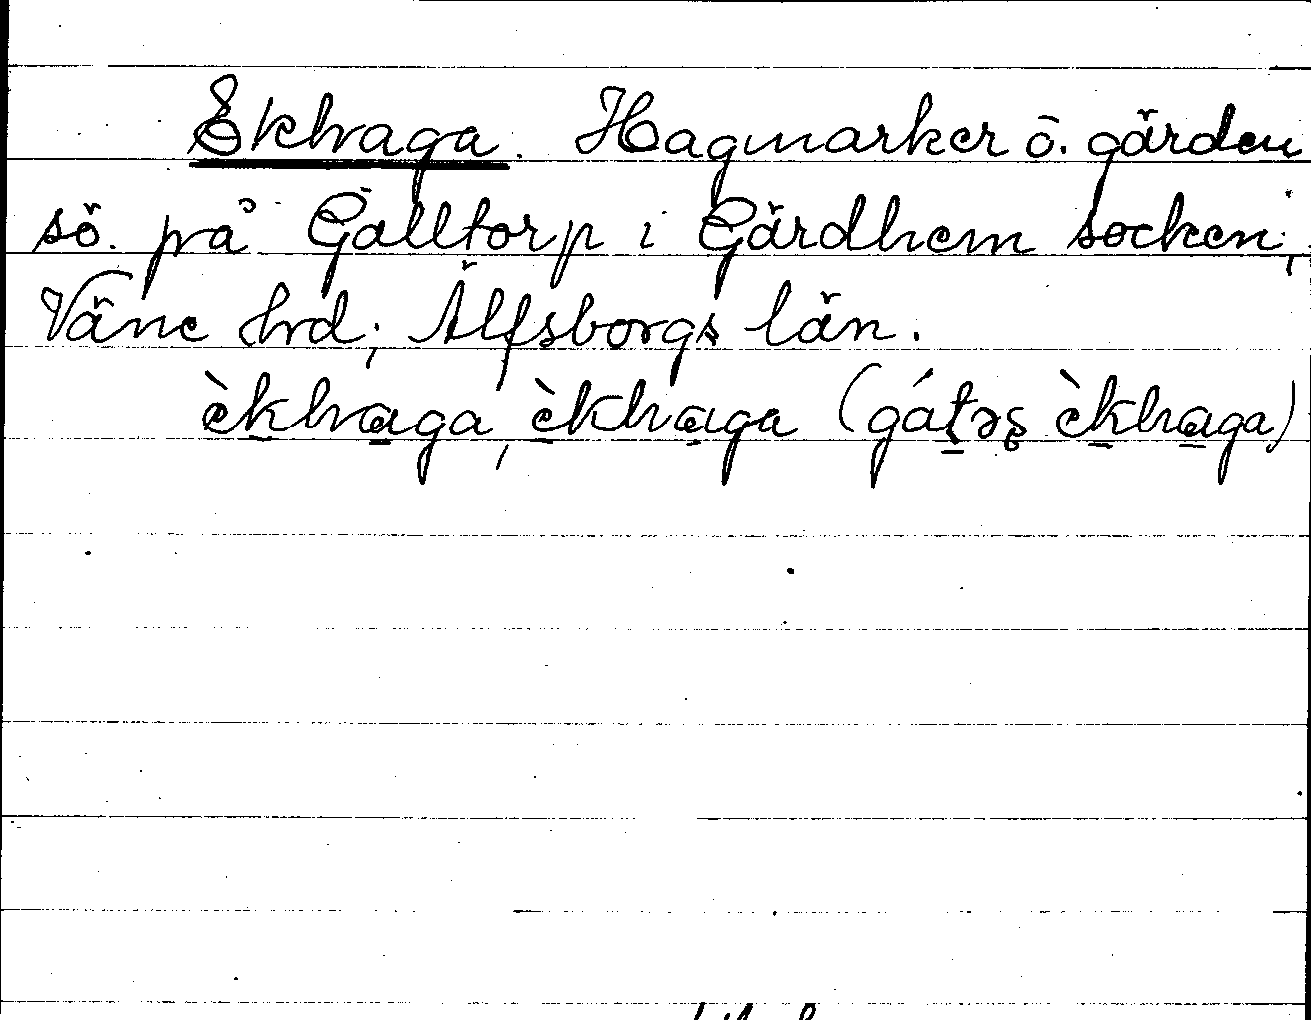 Ekhaga. Hagmarker ö. gärden
sö. på Galltorp i Gärdhem socken;
Väne hrd; Älfsborgs län.
èkhaga, èkhaga (gátəʂ èkhaga)